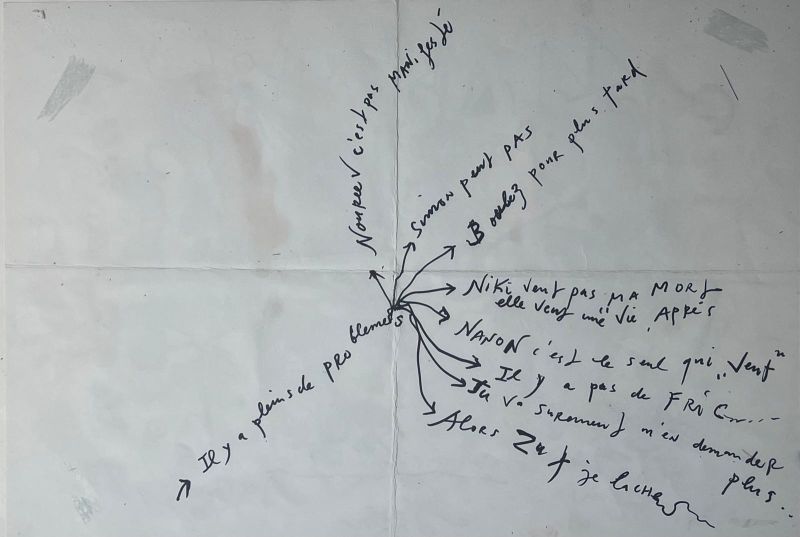 Il y a pleins de PROblemes
Noureev c'est pas MANifesté
Simon peut pas
Boulez pour plus tard
Niki veut pas MA MORT
elle veut une Vie APRÈS
NANON c'est le seul qui "Veut"
Il y a pas de FRiC....
Tu va surement m'en demander
plus...
Alors Zut je